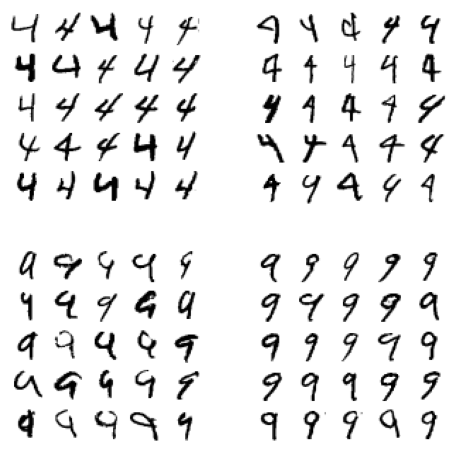 4 4 4 4 4 4 4 4 4 4
4 4 4 4 4 4 4 4 4 4
4 4 4 4 4 4 4 4 4 4
4 4 4 4 4 4 4 4 4 4
4 4 4 4 4 4 4 4 4 4
9 9 9 9 9 9 9 9 9 9
9 9 9 9 9 9 9 9 9 9
9 9 9 9 9 9 9 9 9 9
9 9 9 9 9 9 9 9 9 9
9 9 9 9 9 9 9 9 9 9